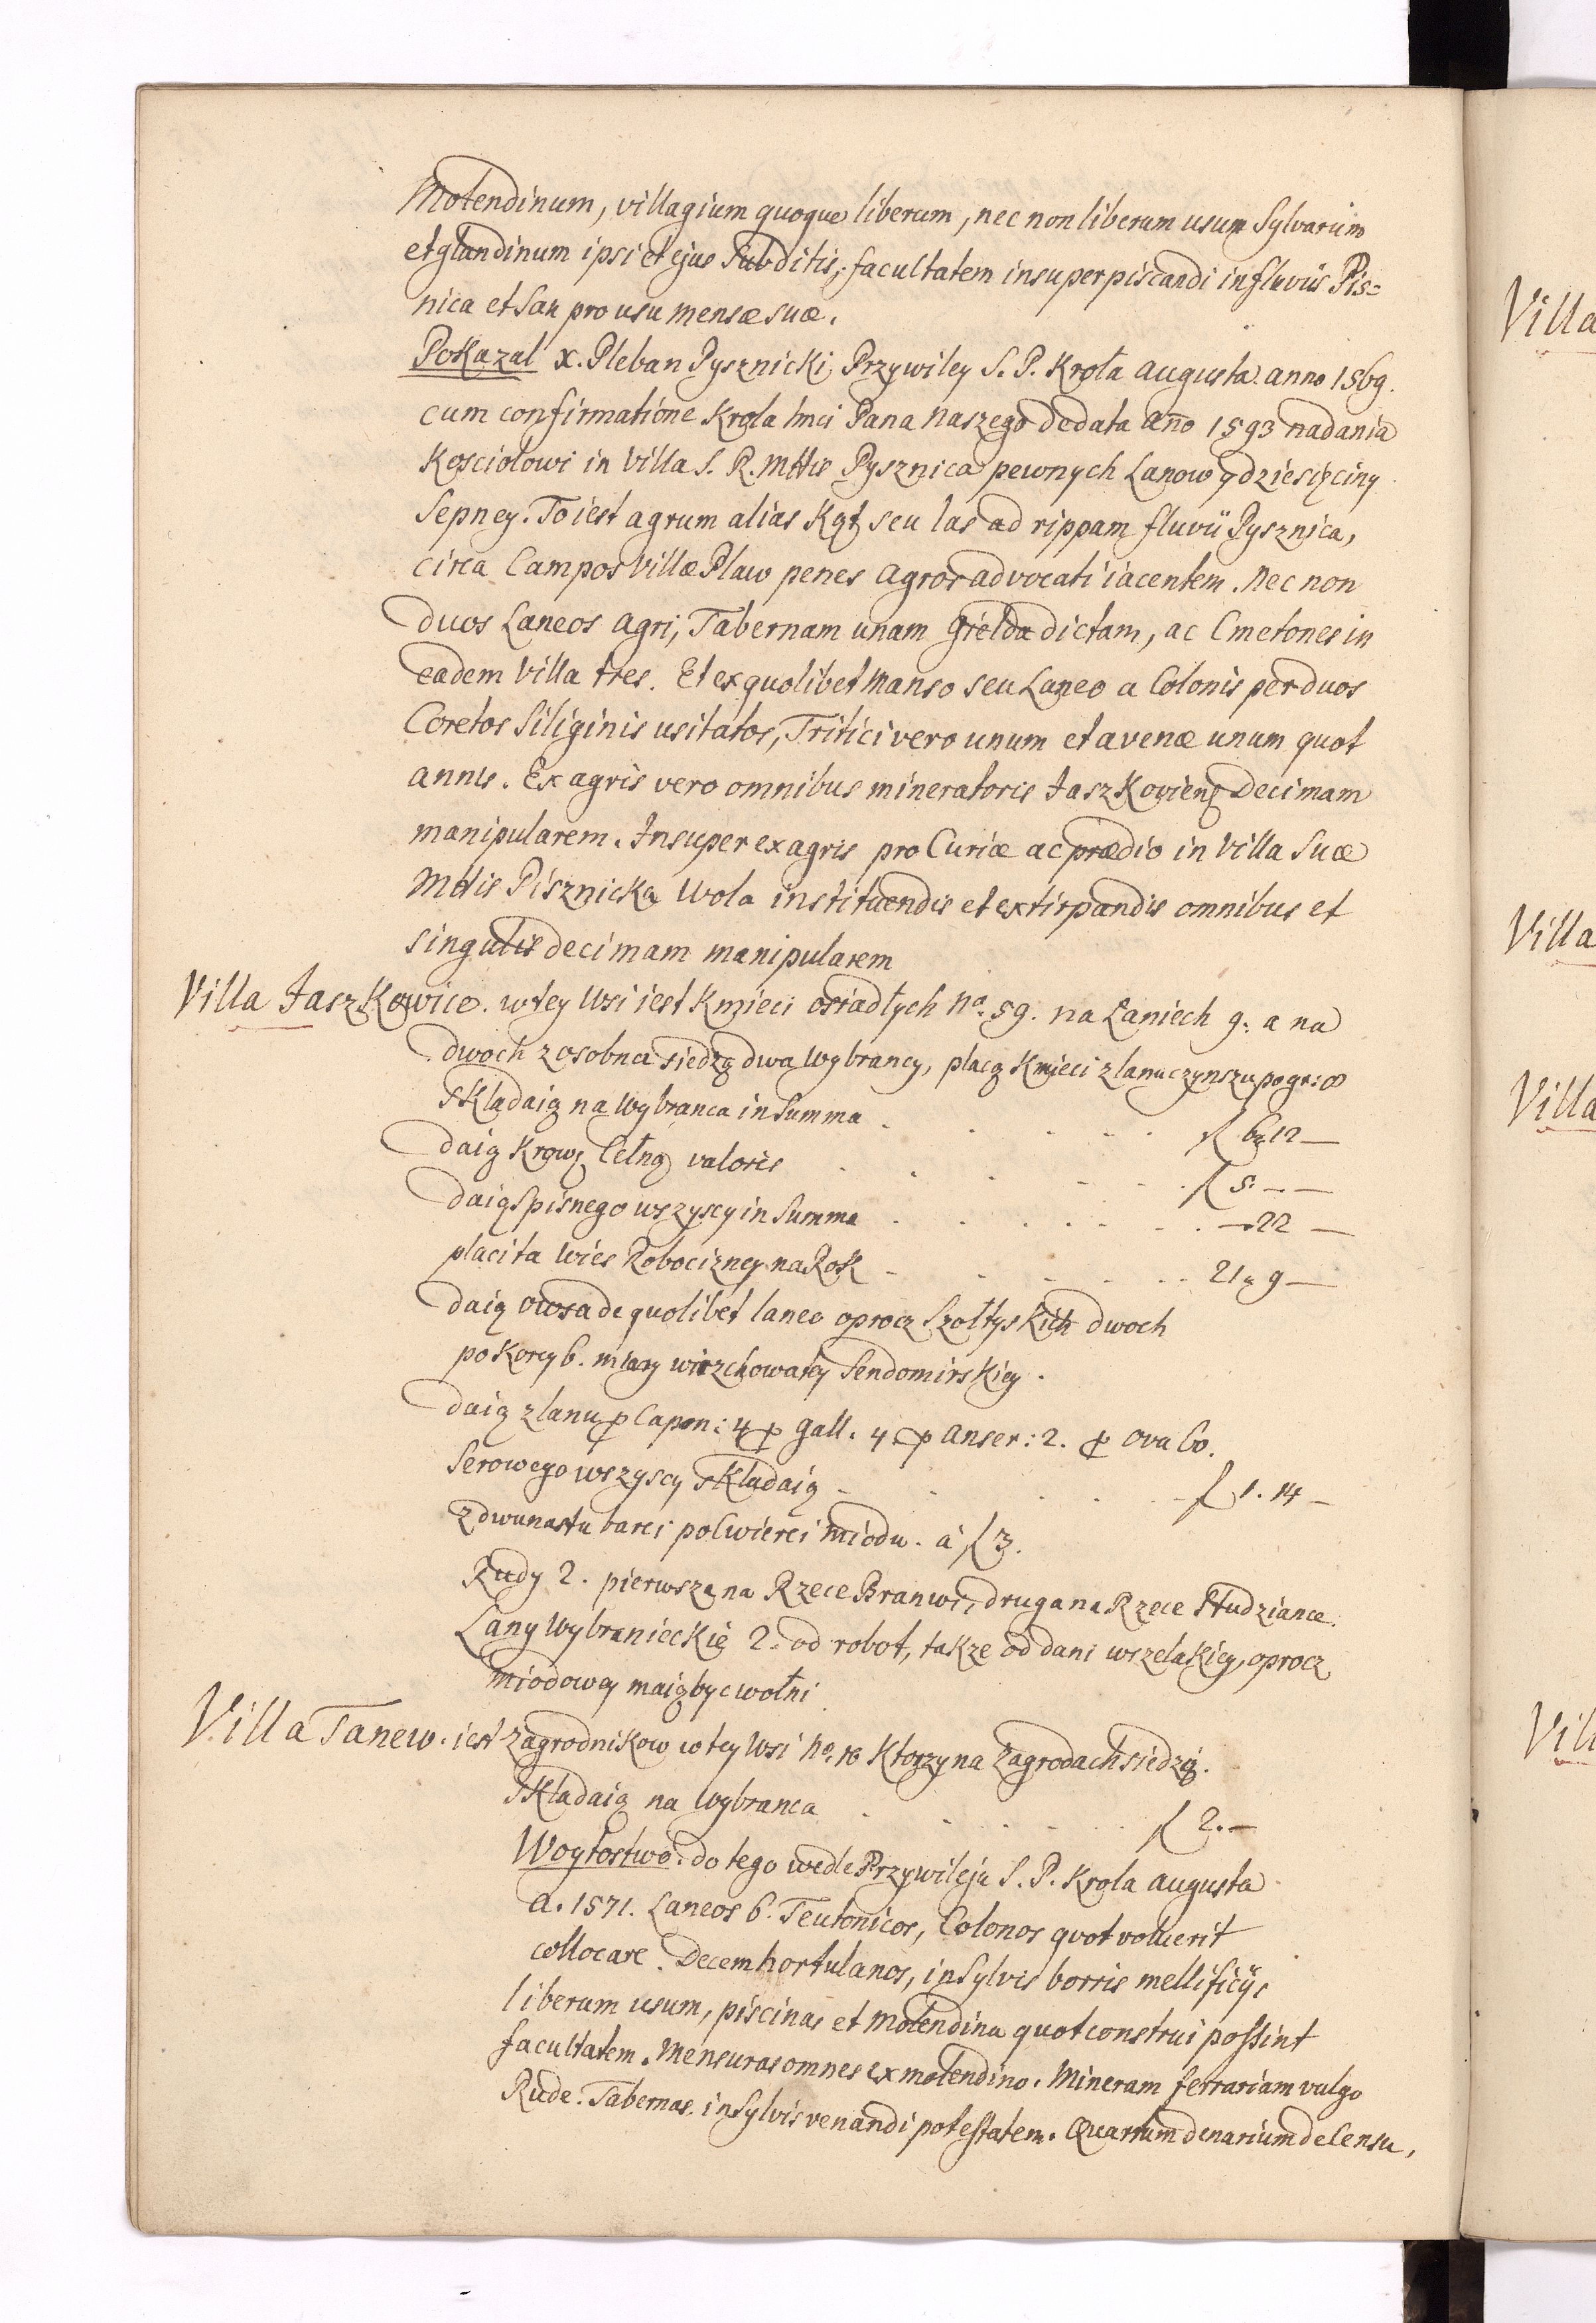 Molendinum, villagium quoque liberum, nec non liberum usum Sylvarum
et glandinum ipsi et ejus Subditis, facultatem insuper piscandi in fluviis Pis=
nica et San pro usu mensæ suæ.
Pokazal X. Pleban Pysznicki Przywiley S. P. Krola Augusta anno 1569.
cum confirmatione Krola Imci Pana Naszego de data Ano 1593 nadania
Kosciolowi in Villa S. R. Mttis Pysznica pewnych Lanow y dziesięciny
Sepney. To iest agrum alias Kąt seu las ad rippam fluvii Pysznica,
circa Campos Villæ Plaw penes agros advocati iacentem. Nec non
duos Laneos agri, Tabernam unam Gielda dictam, ac Cmetones in
eadem Villa tres. Et ex quolibet Manso seu Laneo a Colonis per duos
Coretos Siliginis usitatos, Tritici vero unum et avenæ unum quot
annis. Ex agris vero omnibus mineratoris Jaszkowiens Decimam
manipularem. Insuper ex agris pro Curiæ ac prædio in Villa Suæ
Mttis Pisznicka Wola instituendis et extirpandis omnibus et
singulis decimam manipularem
Villa Jaszkowice. w tey Wsi iest Kmieci osiadlych No. 59. na Laniech 9. a na
dwoch z osobna siedzą dwa Wybrancy, placą Kmieci z lanu czynszu po gr: 8
Skladaią na Wybranca in Summa . . . . . f 6 12 —
daią Krowę Celną valoris . . . . . f 5. — —
daią Spisnego wszyscy in Summa . . . . . — 22 —
placi ta Wies Robocizney na Rok . . . . . 21 9 —
daią owsa de quolibet laneo oprocz Szoltyskich dwoch
po Korcy 6. miary wirzchowatey Sendomirskiey.
daią z lanu p Capon: 4 p Gall. 4 p Anser: 2. p Ova 60.
Serowego wszyscy Skladaią . . . . . f 1. 14 —
Z dwunastu barci pol wierci miodu. a f 3.
Rudy 2. pierwsza na Rzece Branwi, druga na Rzece Studziance.
Lany Wybranieckie 2. od robot, takze od dani wszelakiey, oprocz
miodowey maią byc wolni
Villa Tanew. iest zagrodnikow w tey Wsi No. 10 Ktorzy na Zagrodach siedzą.
Skladaią na Wybranca . . . . . f 2. —
Woytostwo. do tego wedle Przywileju S. P. Krola Augusta
A. 1571. Laneos 6. Teutonicos, Colonos quot voluerit
collocare. Decem hortulanos, in Sylvis borris mellificijs
liberum usum, piscinas et molendina quot construi possint
facultatem. Mensuras omnes ex molendino. Mineram ferrariam vulgo
Rude. Tabernas. in Sylvis venandi potestatem. Quartum denarium de Censu,
Villa
Villa
Villa
Vill